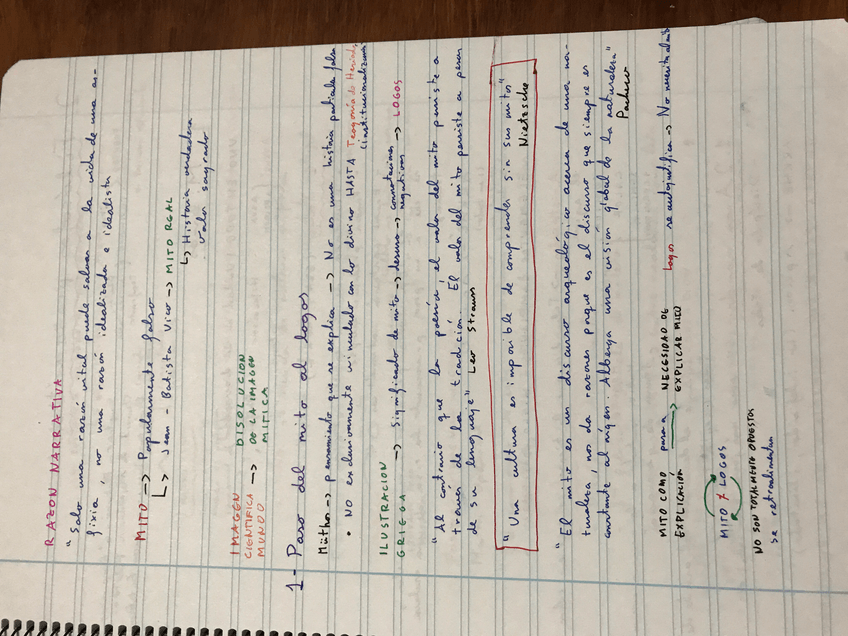 RAZON NARRATIVA
"Solo una razón vital puede salvar a la vida de una as-
fixia, no una razón idealizada e idealista
MITO → Popularmente falso
↳ Jean-Batista Vico → MITO REAL
↳ Historia verdadera
Valor sagrado
IMAGEN
CIENTIFICA →
MUNDO
DISOLUCION
DE LA IMAGEN
MITICA
1- Paso del mito al logos
Müthos → pensamiento que se explica → No es una historia patraña falsa
• NO exclusivamente vinculado con lo divino HASTA Teogonía de Hesíodo
(institucionalización
ILUSTRACION
GRIEGA → Significado de mito → desuso → connotaciones
negativas → LOGOS
"Al contrario que la poesía, el valor del mito persiste a
traves de la tradición. El valor del mito persiste a pesar
de su lenguaje" Leo Strauss
"Una cultura es imposible de comprender sin sus mitos"
Nietzsche
"El mito es un discurso arqueológico acerca de una na-
turaleza, nos da razones porque es el discurso que siempre es
constante al origen. Alberga una visión global de la naturaleza"
Pacheco
MITO COMO
EXPLICACION
pasa a
→
NECESIDAD DE
EXPLICAR MITO
Logos se autojustifica → No necesita al mito
MITO ≠ LOGOS
NO SON TOTALMENTE OPUESTOS
se retroalimentan